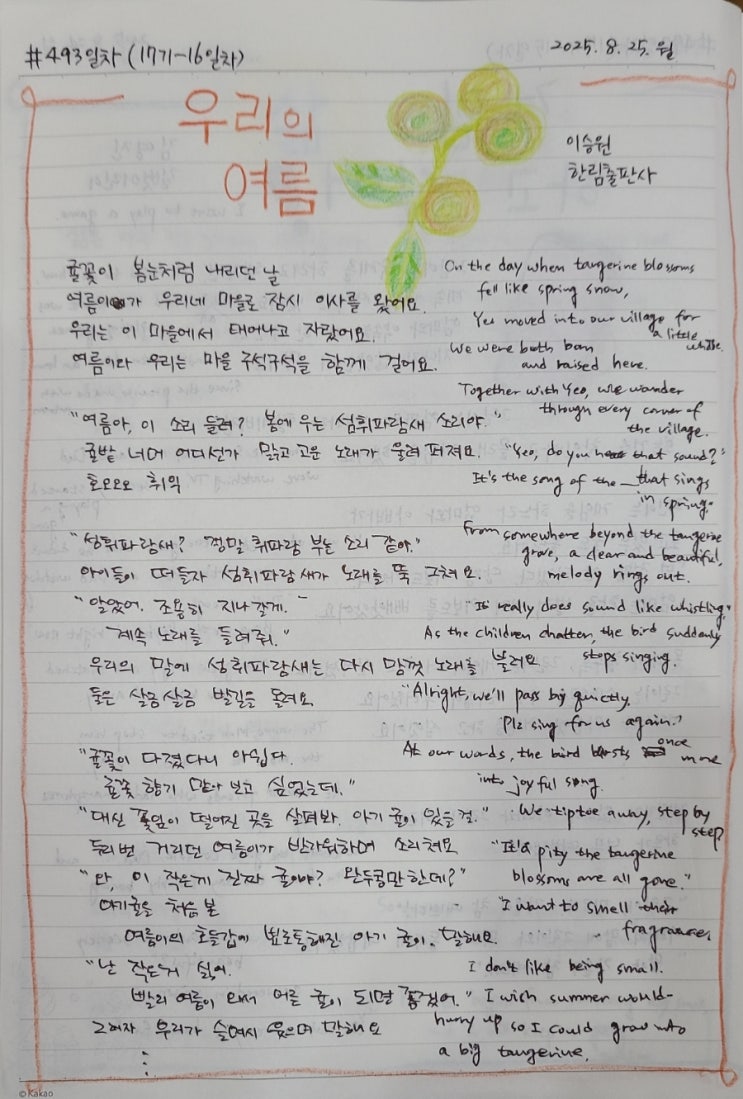 #493일차 (17기-16일차)
2025. 8. 25. 월
우리의
여름
이승원
한림출판사
귤꽃이 봄눈처럼 내리던 날
여름이가 우리네 마을로 잠시 이사를 왔어요.
우리는 이 마을에서 태어나고 자랐어요.
여름이와 우리는 마을 구석구석을 함께 걸어요.
"여름아, 이 소리 들려? 봄에 우는 섬휘파람새 소리야."
귤밭 너머 어디선가 맑고 고운 노래가 울려 퍼져요.
호오오오 휘익
"섬휘파람새? 정말 휘파람 부는 소리 같아."
아이들이 떠들자 섬휘파람새가 노래를 뚝 그쳐요.
"알았어. 조용히 지나갈게.
계속 노래를 들려줘."
우리의 말에 섬휘파람새는 다시 맘껏 노래를 불러요
들은 살금살금 발길을 돌려요
"귤꽃이 다졌다니 아쉽다.
귤꽃 향기 맡아 보고 싶었는데."
"대신 꽃잎이 떨어진 곳을 살펴봐. 아기 귤이 있을 걸."
두리번 거리던 여름이가 반가워하며 소리쳐요
"와, 이 작은게 진짜 귤이야? 완두콩만한데?"
아기귤을 처음 본
여름이의 호들갑에 뾰로통해진 아기 귤이. 말해요.
"난 작은거 싫어.
빨리 여름이 와서 어른 귤이 되면 좋겠어."
그러자 우리가 슬며시 웃으며 말해요
On the day when tangerine blossoms
fell like spring snow,
Yeo moved into our village for
a little while.
We were both born
and raised here.
Together with Yeo, we wander
through every corner of
the village.
"Yeo, do you hear that sound?"
It's the song of the that sings
in spring."
From somewhere beyond the tangerine
grove, a clear and beautiful,
melody rings out.
"It really does sound like whistling."
As the children chatter, the bird suddenly
stops singing.
"Alright, we'll pass by quietly.
Plz sing for us again."
At our words, the bird bursts once more
into joyful song.
We tiptoe away, step by
step
"It's a pity the tangerine
blossoms are all gone."
"I want to smell their
fragrance.
I don't like being small.
I wish summer would
hurry up so I could grow into
a big tangerine.
©Kakao